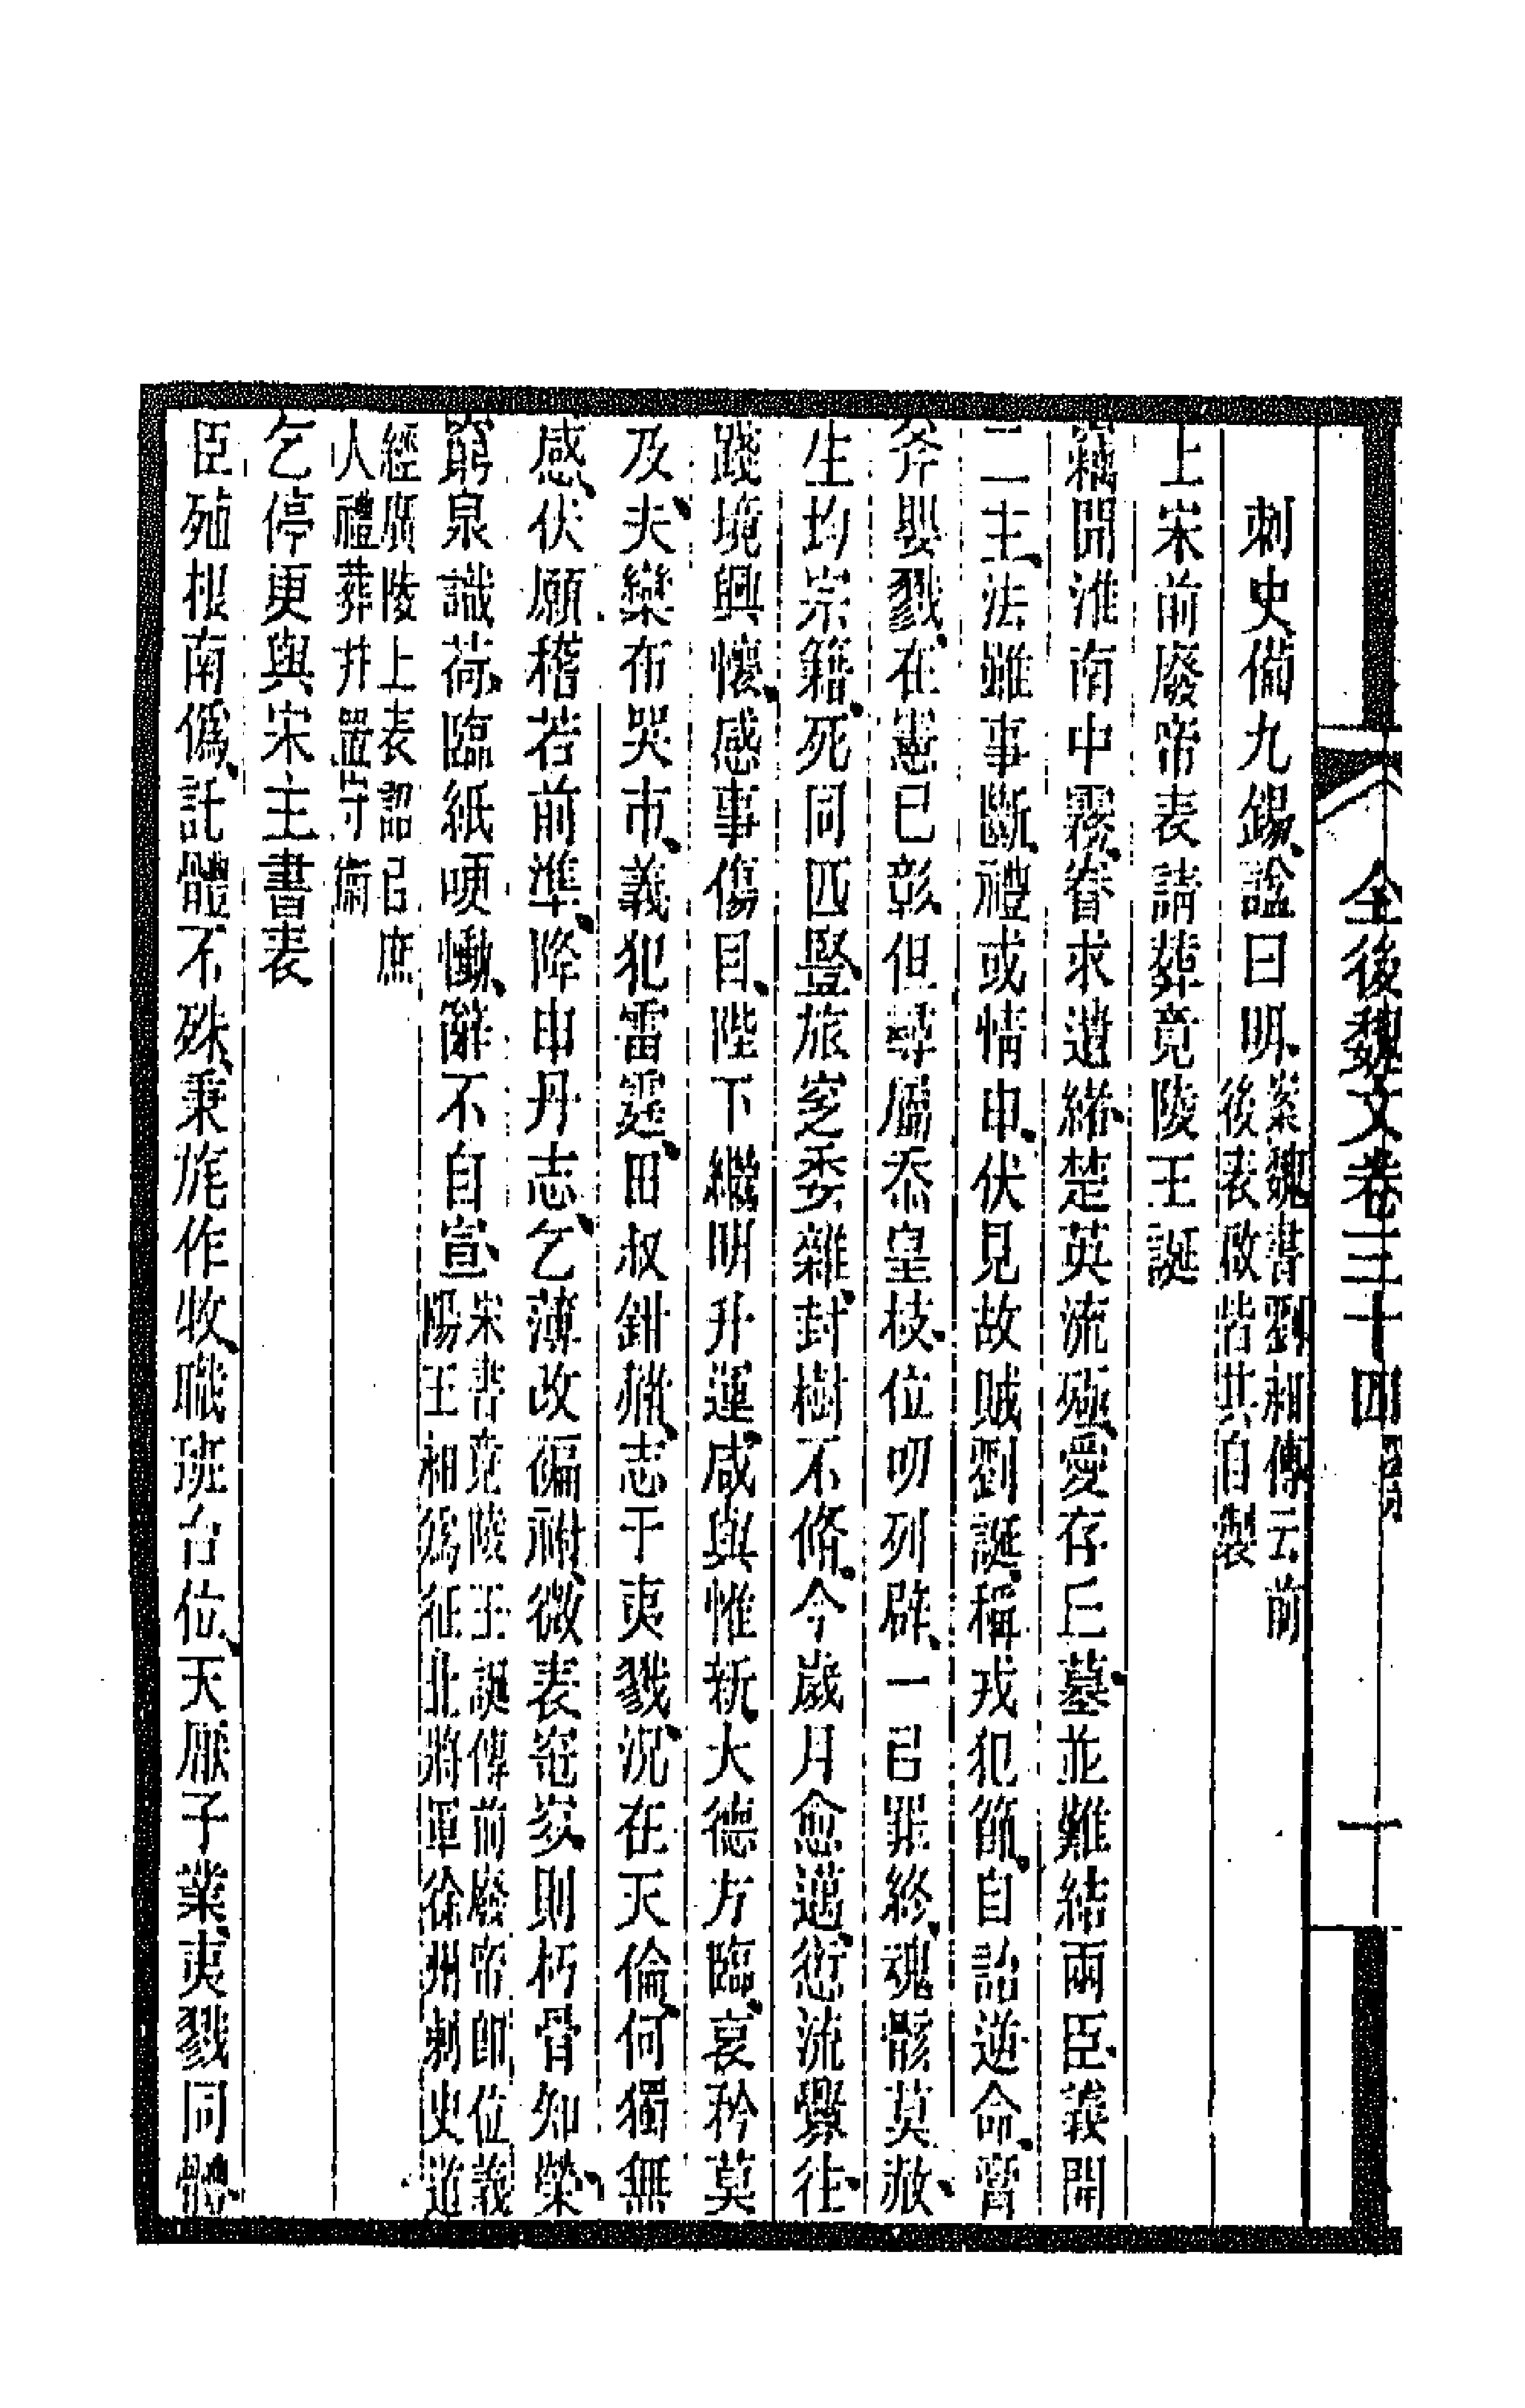 全後魏文卷三十四
一
刺史備九錫、諡曰明、案魏書劉昶傳云前
後表啟皆其自製
上宋前廢帝表請葬竟陵王誕
竊聞淮南中霧、眷求遺緒、楚英流殛、愛存丘墓、並難結兩臣、義開
二主、法雖事斷、禮或情申、伏見故賊劉誕、稱戎犯節、自詒逆命、膏
斧嬰戮、在憲已彰、但尋屬忝皇枝、位叨列辟、一㠯罪終、魂骸莫赦、
生均宗籍、死同匹豎、旅窆委雜、封樹不脩、今歲月愈邁、愆流釁往、
踐境興懷、感事傷目、陛下繼明升運、咸與惟新、大德方臨、哀矜莫
及、夫欒布哭市、義犯雷霆、田叔鉗赭、志于夷戮、況在天倫、何獨無
感、伏願稽若前準、降申丹志、乞薄改褊祔、微表窀穸、則朽骨知榮、
窮泉識荷、臨紙哽慟、辭不自宣、宋書竟陵王誕傳前廢帝即位義
陽王昶爲征北將軍徐州刺史道
經廣陵上表詔㠯庶
人禮葬并置守衞
乞停更與宋主書表
臣殖根南僞、託體不殊、秉旄作牧、職班台位、天厭子業、夷戮同體、